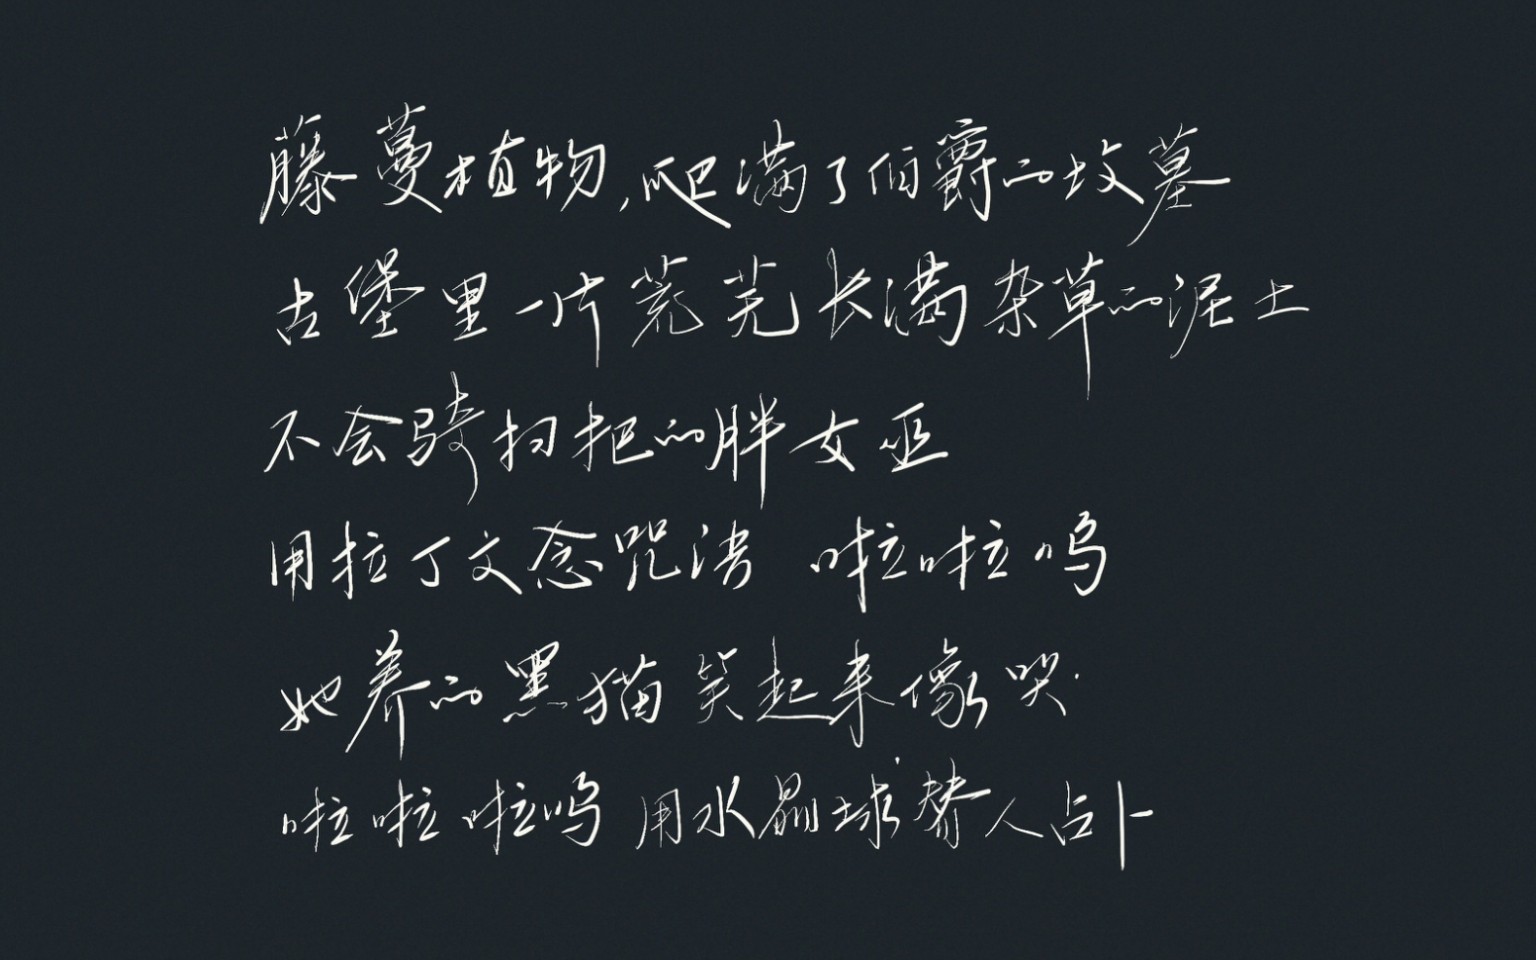 藤蔓植物,爬满了伯爵的坟墓
古堡里一片荒芜长满杂草的泥土
不会骑扫把的胖女巫
用拉丁文念咒语 啦啦呜
她养的黑猫笑起来像哭
啦啦啦呜 用水晶球替人占卜